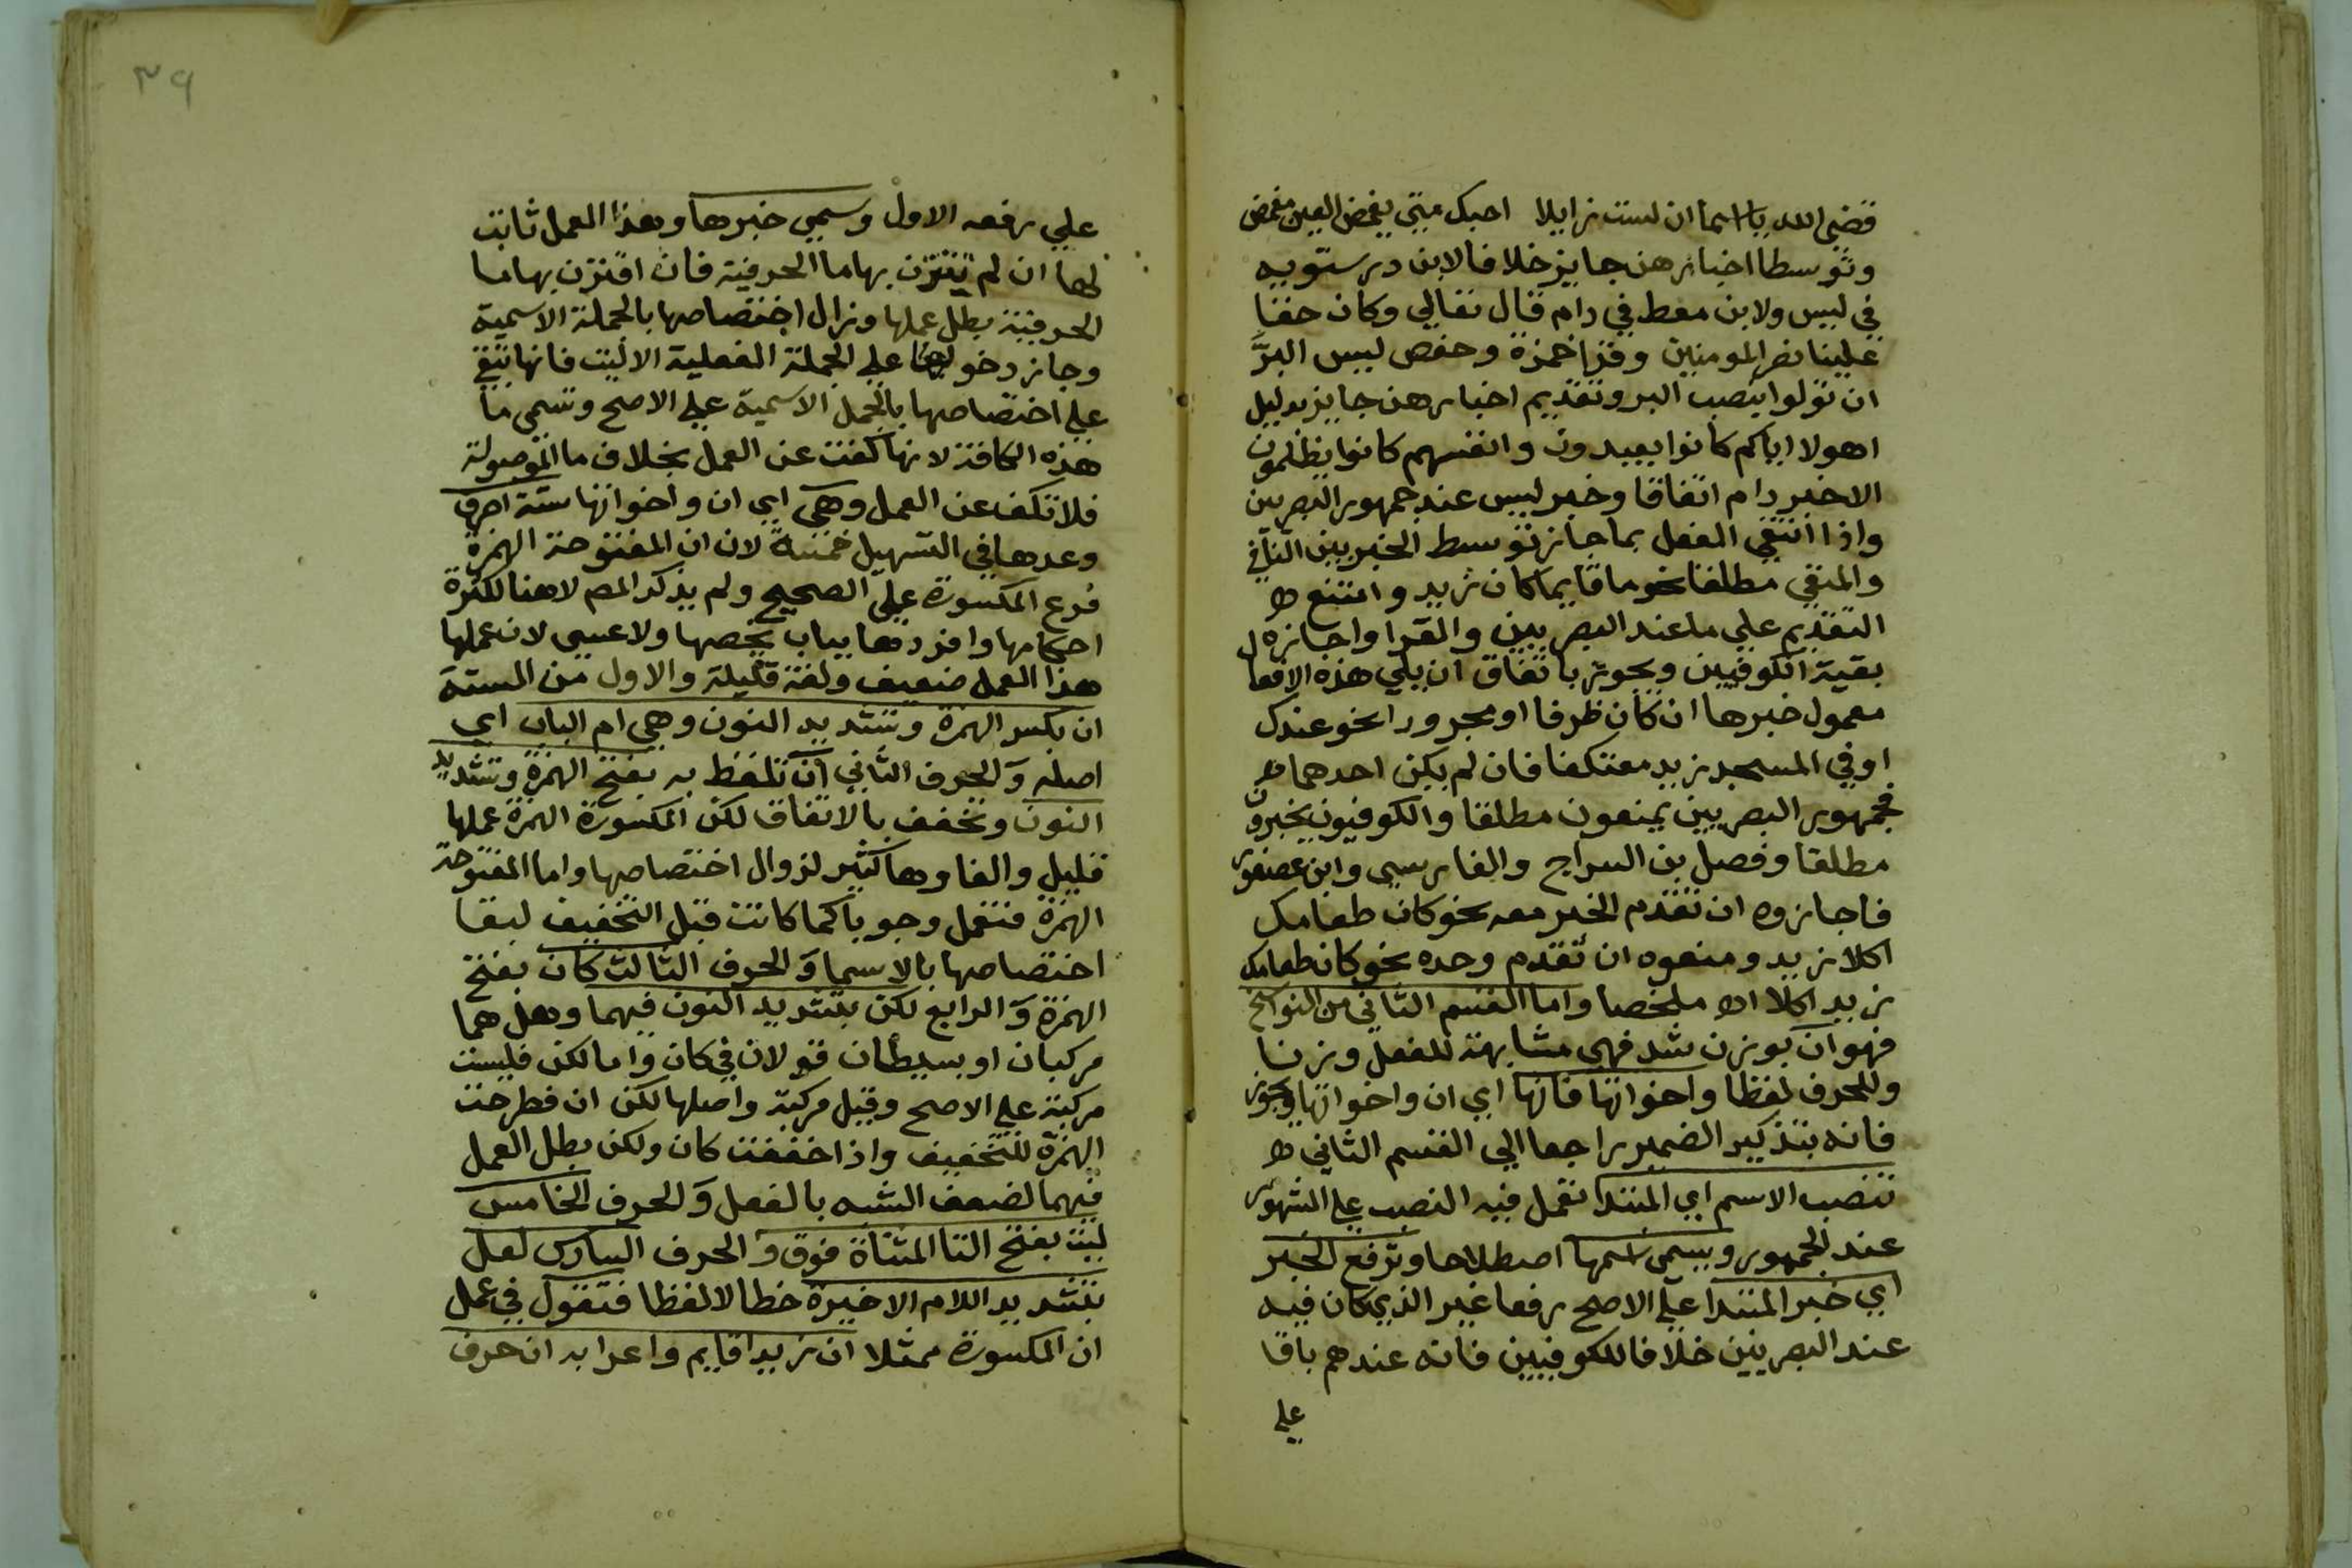 قضي الله يا اسما ان لست زايلا احبك متي يغمض العين مغمض
وتوسطا اخبارهن جايز خلافا لابن درستويه
في ليس ولابن معط في دام قال تعالي وكان حقا
علينا نصر المومنين وقرا حمزة وحفص ليس البرَّ
ان تولوا بنصب البر وتقديم اخبارهن جايز بدليل
اهولا اياكم كانوا يعبدون وانفسهم كانوا يظلمون
الا خبر دام اتفاقا وخبر ليس عند جمهور البصريين
واذا انتفي الفعل بما جاز توسط الخبر بين النافي
والمنفي مطلقا نحو ما قايما كان زيد وامتنع
التقديم علي ما عند البصريين والفرا واجازه
بقية الكوفيين ويجوز باتفاق ان يلي هذه الافعال
معمول خبرها ان كان ظرفا او مجرورا نحو عندك
او في المسجد زيد معتكفا فان لم يكن احدهما
فجمهور البصريين يمنعون مطلقا والكوفيون يخيرون
مطلقا وفصل بن السراج والفارسي وابن عصفور
فاجازوه ان تقدم الخبر معه نحو كان طعامك
اكلا زيد ومنعوه ان تقدم وحده نحو كان طعامك
زيد اكلا اه ملخصا واما القسم الثاني من النواسخ
فهو انّ بوزن شد فهي مشابهة للفعل وزنا
وللحرف لفظا واخواتها فانها اي ان واخواتها ويجوز
فانه بتذكير الضمير راجعا الي القسم الثاني
تنصب الاسم اي المبتدا تعمل فيه النصب علي المشهور
عند الجمهور ويسمي اسمها اصطلاحا وترفع الخبر
اي خبر المبتدا علي الاصح رفعا غير الذي كان فيه
عند البصريين خلافا للكوفيين فانه عندهم باقا
علي
٣٩
علي رفعه الاول وسمي خبرها وهذا العمل ثابت
لها ان لم تقترن بها ما الحرفية فان اقترن بها ما
الحرفية بطل عملها وزال اختصاصها بالجملة الاسمية
وجاز دخولها علي الجملة الفعلية الا ليت فانها تبقي
علي اختصاصها بالجمل الاسمية علي الاصح وتسمي ما
هذه الكافة لانها كفت عن العمل بخلاف ما الموصولة
فلا تكف عن العمل وهي اي ان واخواتها ستة احرف
وعدها في التسهيل خمسة لان ان المفتوحة الهمزة
فرع المكسورة علي الصحيح ولم يذكر المص لا هنا لكثرة
احكامها وافردها بباب يخصها ولا عسي لان عملها
هذا العمل ضعيف ولغة قليلة والاول من الستة
ان بكسر الهمزة وتشديد النون وهي ام الباب اي
اصله وَالحرف الثاني انّ تلفظ به بفتح الهمزة وتشديد
النون وتخفف بالاتفاق لكن المكسورة الهمزة عملها
قليل والغاوها كثير لزوال اختصاصها واما المفتوحة
الهمزة فتعمل وجوبا كما كانت قبل التخفيف لبقا
اختصاصها بالاسما وَالحرف الثالث كان بفتح
الهمزة وَالرابع لكن بتشديد النون فيهما وهل هما
مركبان او بسيطان قولان في كان واما لكن فليست
مركبة علي الاصح وقيل مركبة واصلها لكن ان فطرحت
الهمزة للتخفيف واذا خففت كان ولكن بطل العمل
فيهما لضعف الشبه بالفعل وَالحرف الخامس
ليت بفتح التا المثناة فوق وَالحرف السادس لعل
بتشديد اللام الاخيرة خطا لا لفظا فتقول في عمل
ان المكسورة مثلا ان زيدا قايم واعرابه ان حرف